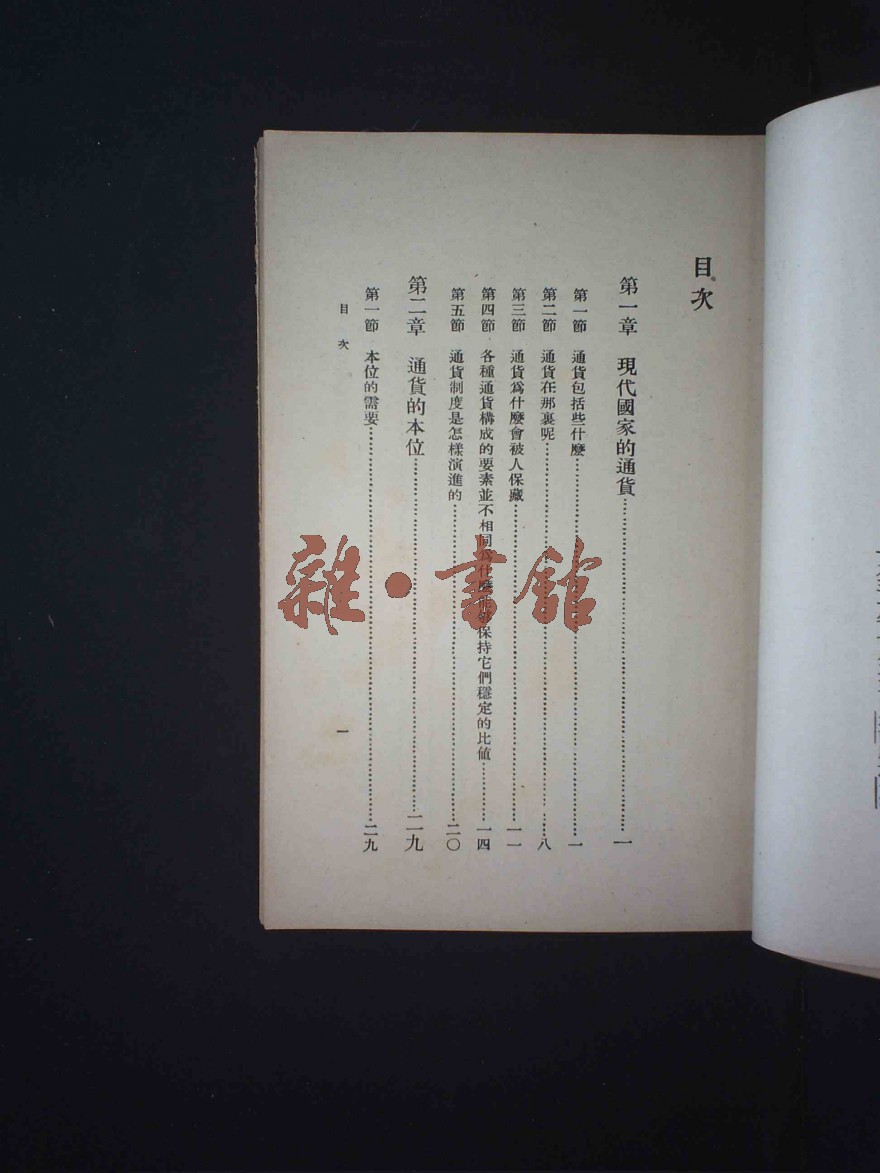 目次
第一章 現代國家的通貨……一
第一節 通貨包括些什麼……一
第二節 通貨在那裏呢……八
第三節 通貨爲什麼會被人保藏……一一
第四節 各種通貨構成的要素並不相同爲什麼能夠保持它們穩定的比値……一四
第五節 通貨制度是怎樣演進的……二〇
第二章 通貨的本位……二九
第一節 本位的需要……二九
目次
一
雜·書館